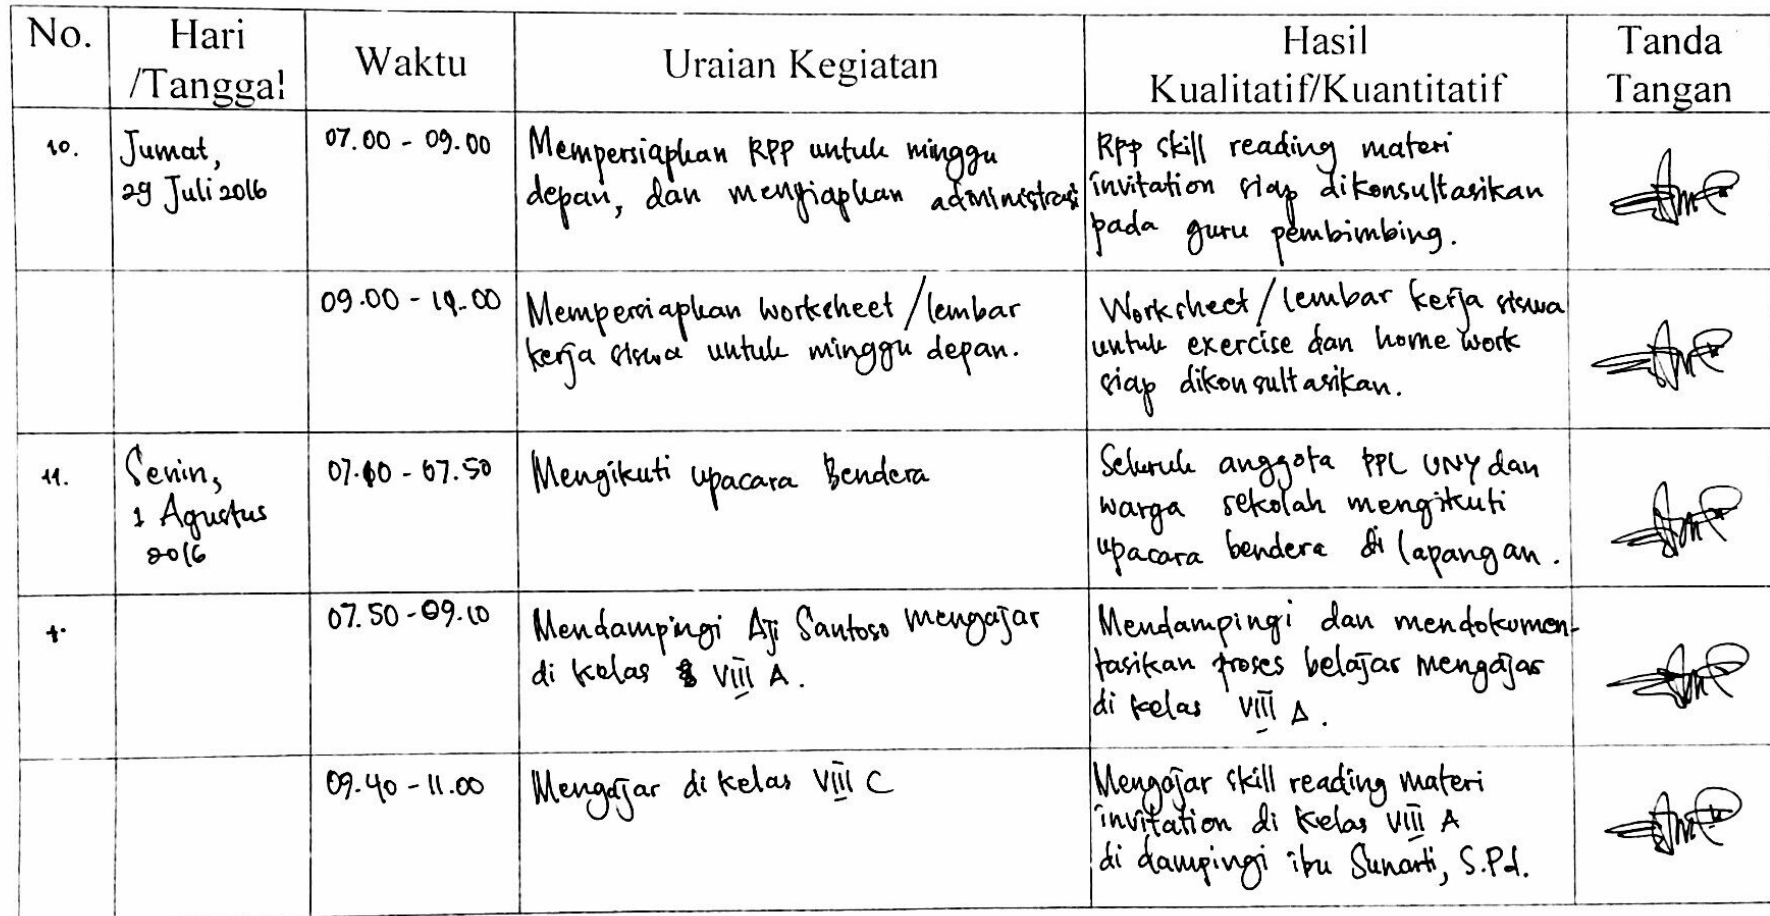 No.
Hari
/Tanggal
Waktu
Uraian Kegiatan
Hasil
Kualitatif/Kuantitatif
Tanda
Tangan
10.
Jumat,
29 Juli 2016
07.00 - 09.00
Mempersiapkan RPP untuk minggu
depan, dan menyiapkan administrasi
RPP skill reading materi
invitation siap dikonsultasikan
pada guru pembimbing.
09.00 - 11.00
Mempersiapkan worksheet / lembar
kerja siswa untuk minggu depan.
Worksheet / lembar kerja siswa
untuk exercise dan home work
siap dikonsultasikan.
11.
Senin,
1 Agustus
2016
07.10 - 07.50
Mengikuti upacara Bendera
Seluruh anggota PPL UNY dan
warga sekolah mengikuti
upacara bendera di lapangan.
07.50 - 09.10
Mendampingi Aji Santoso mengajar
di kelas VIII A.
Mendampingi dan mendokumen-
tasikan proses belajar mengajar
di kelas VIII A.
09.40 - 11.00
Mengajar di kelas VIII C
Mengajar skill reading materi
invitation di kelas VIII A
di dampingi ibu Sunarti, S.Pd.